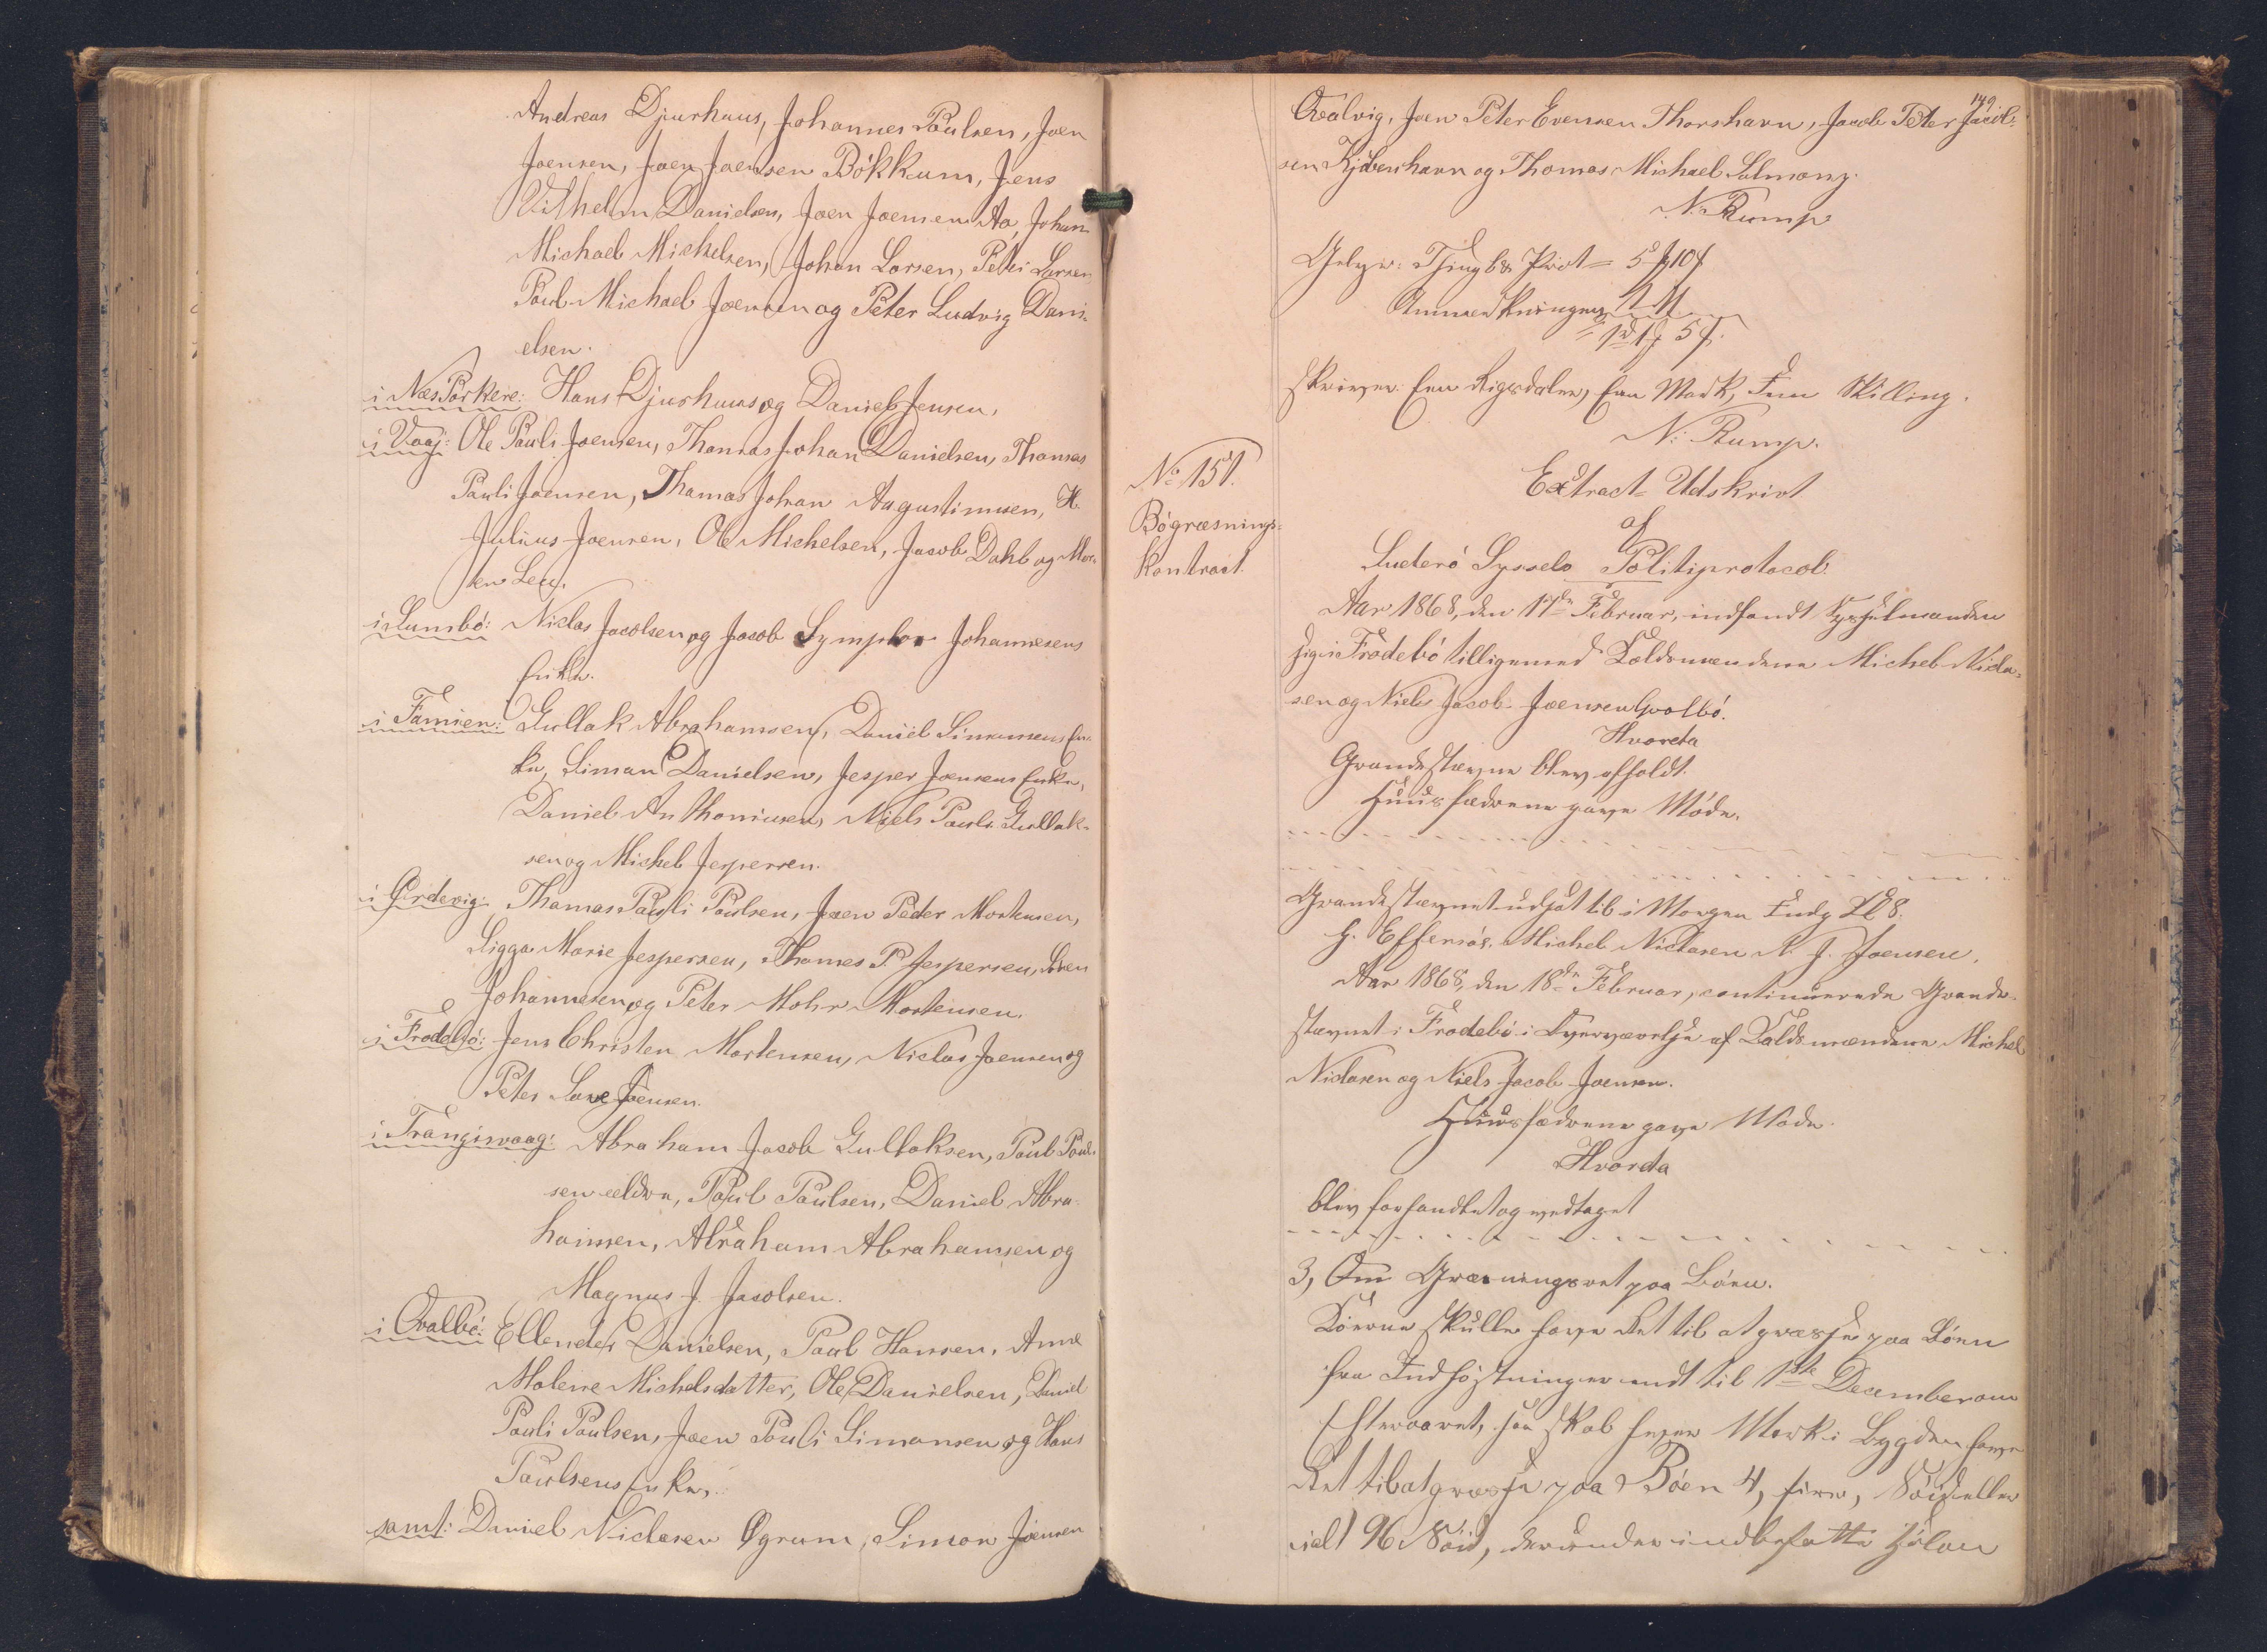 Andreas Djurhuus, Johannes Poulsen, Joen
Joensen, Joen Joensen Bökkum, Jens
Vilhelm Danielsen, Joen Joensen Aa, Johan
Michael Michelsen, Johan Larsen, Petri Larsen
Poul Michael Joensen og Peter Ludvig Dani-
elsen.
i Næs Porkere: Hans Djurhuus og Daniel Jensen.
i Vaaj: Ole Pauli Joensen, Thomas Johan Danielsen, Thomas
Pauli Joensen, Thomas Johan Augustinusen, H.
Julius Joensen, Ole Michelsen, Jacob Dahl og Mor-
ten Ley.
i Sumbö: Niclas Jacobsen og Jacob Johannesens
Enke.
i Famien: Gullak Abrahamsen, Daniel Simunsens En-
ke, Siman Danielsen, Jesper Joensens Enke,
Daniel Anthoniusen, Niels Pauli Gullak-
sen og Michel Jespersen.
i Ördevig: Thomas Pauli Poulsen, Joen Peder Mortensen,
Sigga Marie Jespersen, Thomas P. Jespersen,
Johannesen og Peter Mohr Mortensen.
i Frodebö: Jens Christen Mortensen, Niclas Joensen og
Peter Joensen.
i Trangisvaag: Abraham Jacob Gullaksen, Poul Poul-
sen ældre, Poul Poulsen, Daniel Abra-
hamsen, Abraham Abrahamsen og
Magnus J. Jacobsen.
i Qvalbö: Ellendor Danielsen, Poul Hansen, Anne
Malene Michelsdatter, Ole Danielsen, Daniel
Pauli Poulsen, Joen Pauli Simonsen og Hans
Poulsens Enke,
samt: Daniel Niclasen Øgrum, Simon Joensen
149.
Qvalvig, Joen Peter Evensen Thorshavn, Jacob Peter Jacob-
sen Kjöbenhavn og Thomas Michael Salmony.
N. Rump
Gebyr: Thingl. & Prot = 5 10
Anmærkningen
1 1 5
skriver Een Rigsdaler, Een Mark, Fem Skilling.
N: Rump.
No 151.
Bögræsnings-
kontract.
Extract-Udskrivt
af
Suderö Syssels Politiprotocol.
Aar 1868, den 17de Februar, indfandt Sysselmanden
sig i Frodebö tilligemed Voldsmændene Michel Nicla-
sen og Niels Jacob Joensen Qvalbö.
Hvorda
Grandestævne blev afholdt.
Huusfædrene gave Möde.
Grandestævnet udsat til i Morgen Fmdg Kl 8.
J. Effersöe. Michel Niclasen N. J. Joensen.
Aar 1868, den 18de Februar, continuerede Grande-
stævnet i Frodebö i Overværelse af Voldsmændene Michel
Niclasen og Niels Jacob Joensen.
Huusfædrene gave Möde.
Hvorda
blev forhandlet og vedtaget
3, Om Græsningsret paa Böen.
Köerne skulle have Ret til at græsse paa Böen
fra Indhöstningen endt til 1ste December om
Efteraaret, saa skal hver Mark i Bygden have
Ret til at græsse paa Böen 4, fire, Nöid eller
ialt 96 Nöid, derunder indbefattet